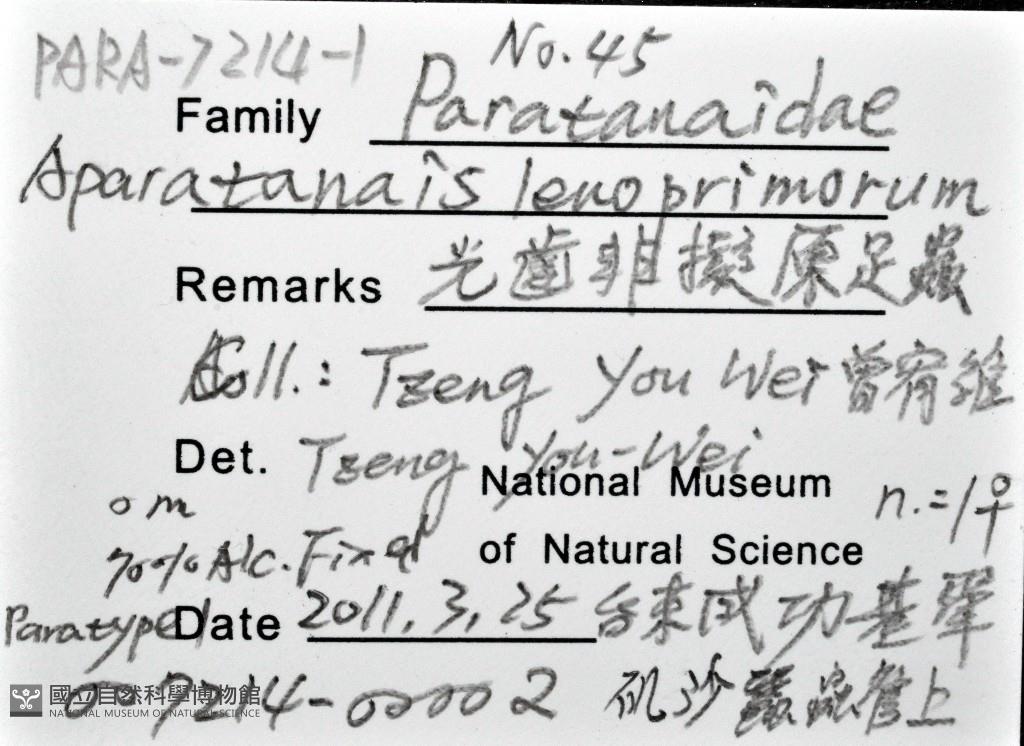 PARA-7214-1 No. 45
Family Paratanaidae
Aparatanais lenoprimorum
Remarks 光齒非擬原足蟲
Coll.: Tzeng You Wei 曾宥維
Det. Tzeng You-Wei
National Museum
0 m n.=1♀
70% Alc. Fixed of Natural Science
Paratype1 Date 2011.3.25 台東成功基翬
14-00002 磯沙蠶蟲管上
國立自然科學博物館
NATIONAL MUSEUM OF NATURAL SCIENCE